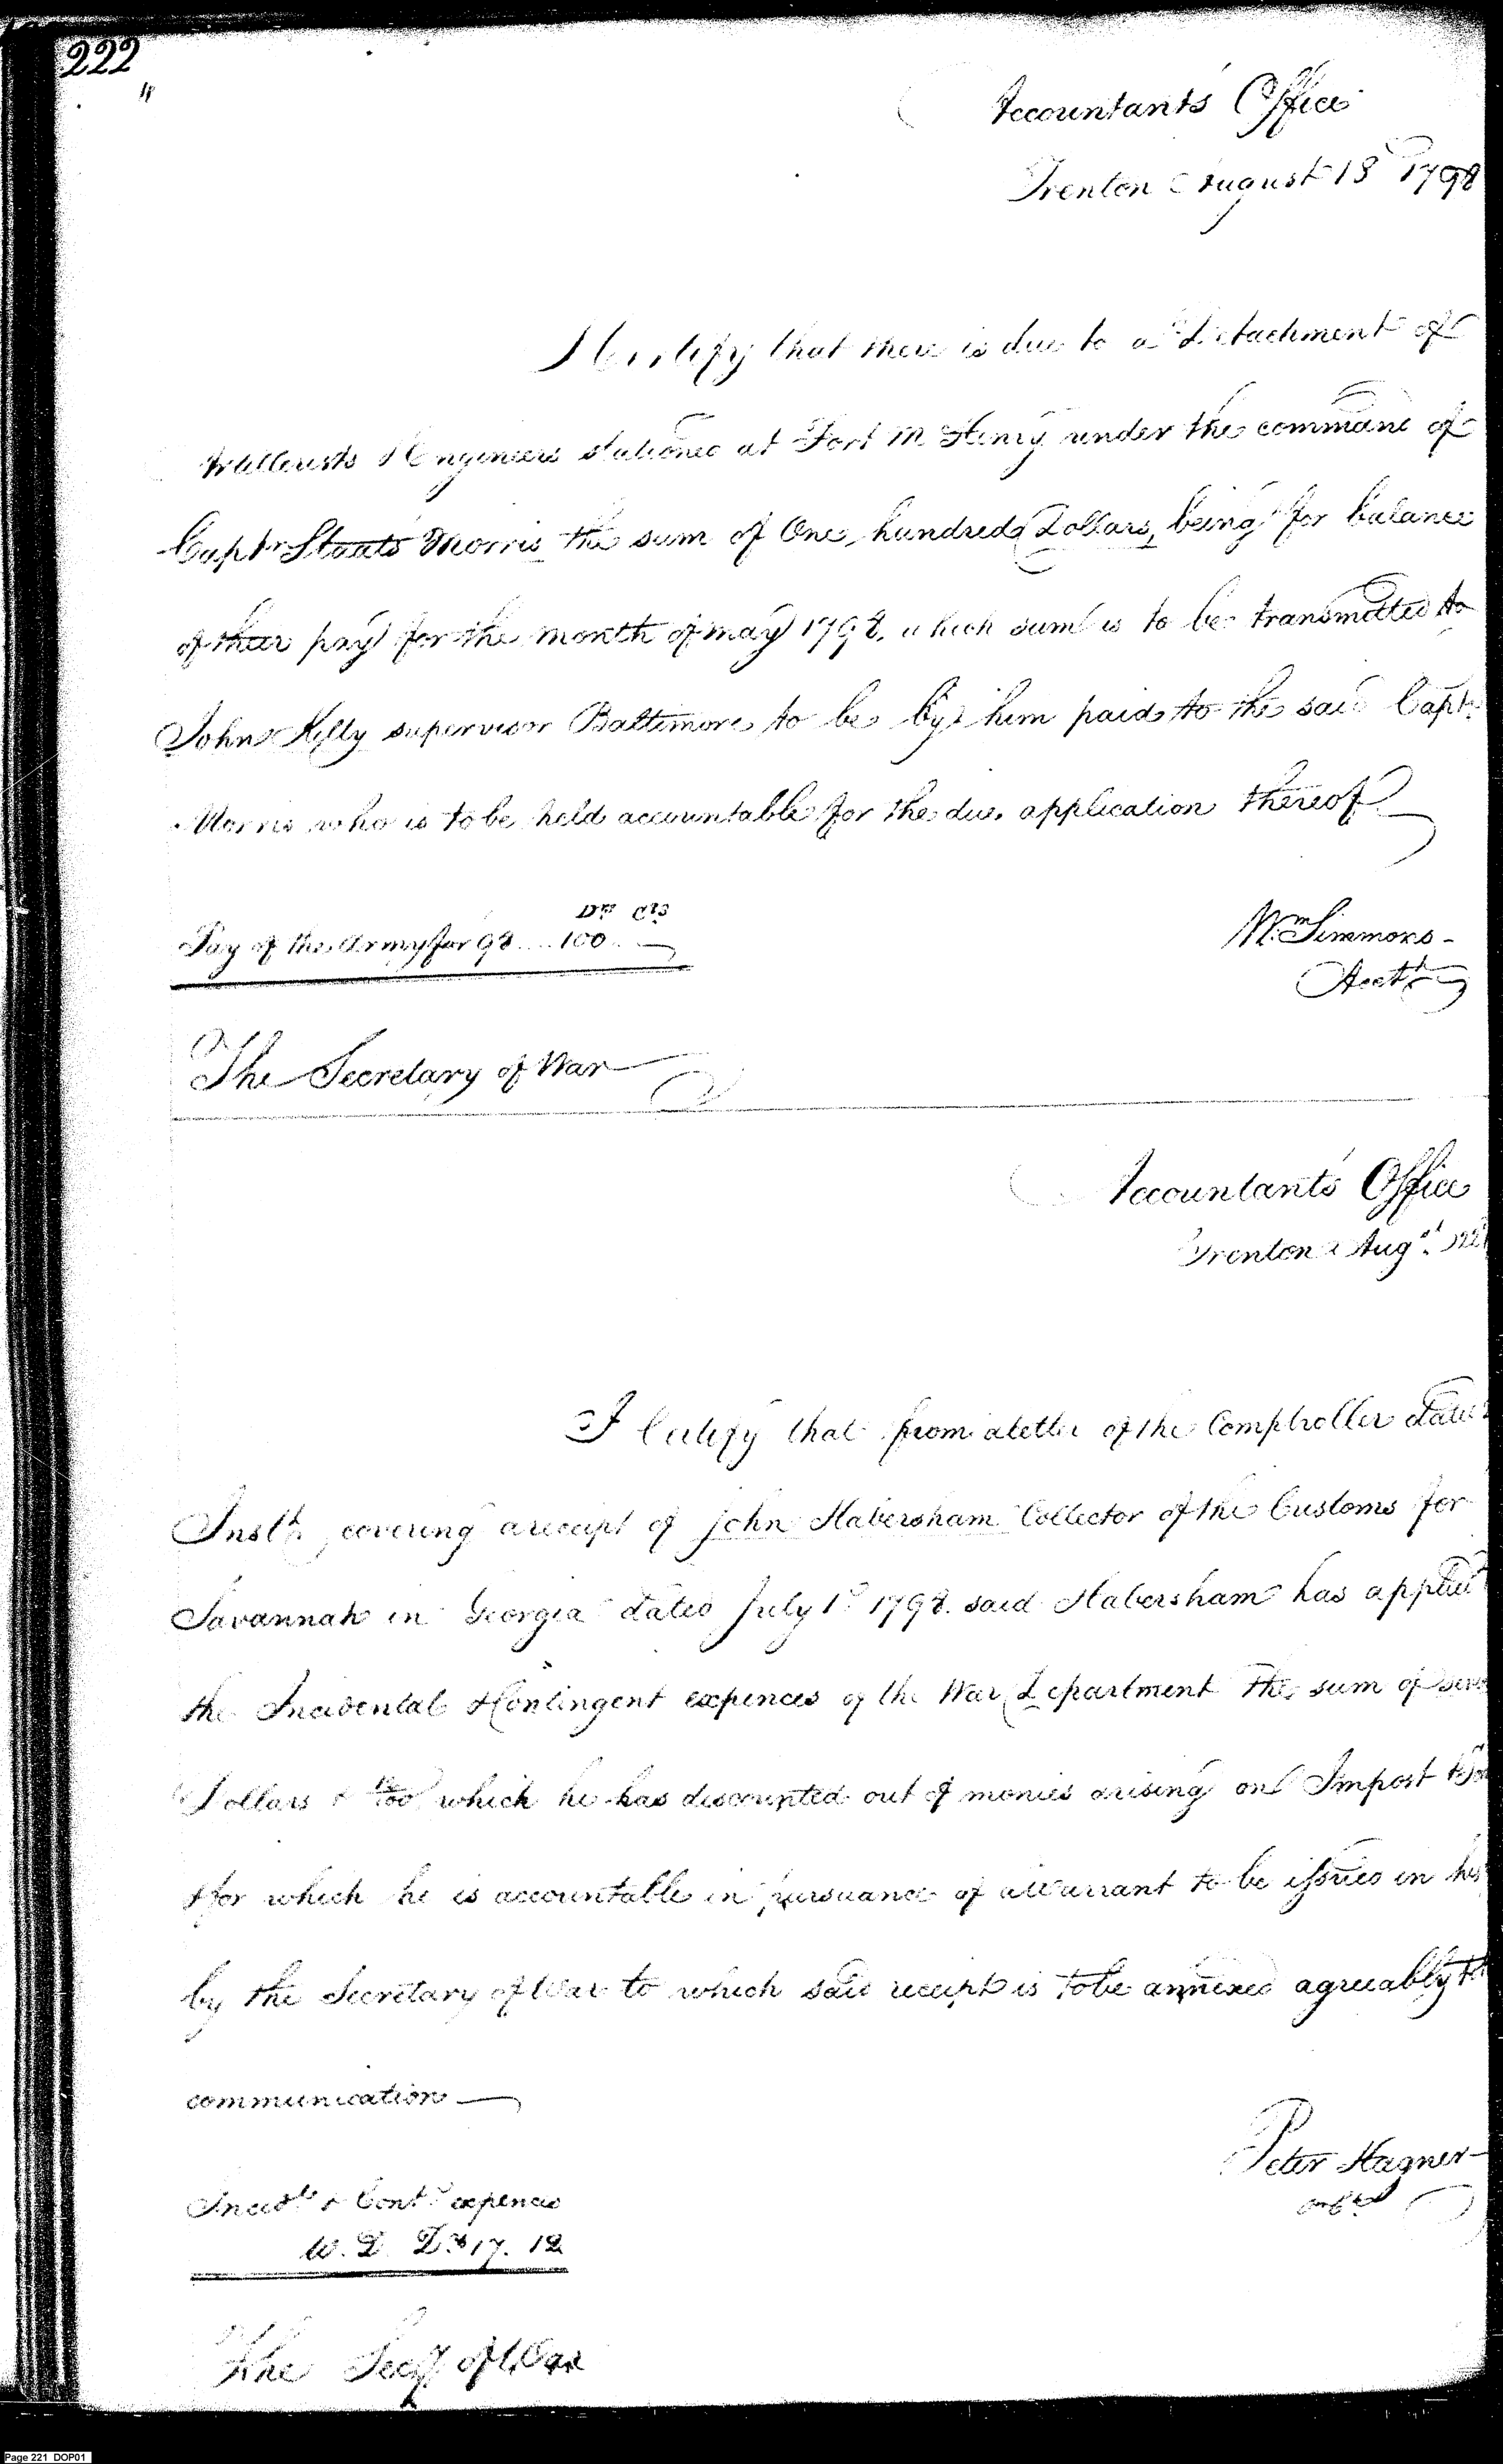 222
Accountants Office
Trenton August 18 1798
I Certify that there is due to a Detachment of
Artillerists & Engineers stationed at Fort McHenry under the command of
Captn Staats Morris the sum of One hundred Dollars, being for balance
of their pay for the month of may 1798, which sum is to be transmitted to
John Kelty supervisor Baltimore to be by him paid to the said Captn
Morris who is to be held accountable for the due application thereof
Drs Cts
Pay of the Army for 98 .... 100 . —
Wm Simmons -
Acctt
The Secretary of War
Accountants Office
Trenton Augst
I Certify that from a letter of the Comptroller dated
Instt, covering a receipt of john Habersham Collector of the Customs for
Savannah in Georgia dated July 1st 1798. said Habersham has applied
the Incidental & Contingent expences of the War Department the sum of
Dollars & 12/100 which he has discounted out of monies arising on Impost
& for which he is accountable in pursuance of a Warrant to be issued in his
by the Secretary of War to which said receipt is to be annexed agreeably
communication —
Peter Hagner
Incidtl & Contt expences
W. D. Ds 17. 12
The Secy of War
Page 221 DOP01